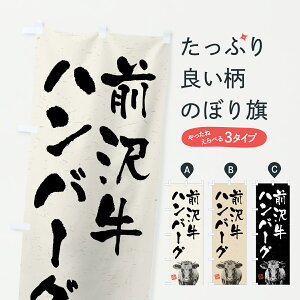 前沢牛
ハンバーグ
たっぷり
良い柄
のぼり旗
やったね
えらべる3タイプ
A
B
C
前沢牛
ハンバーグ
前沢牛
ハンバーグ
前沢牛
ハンバーグ